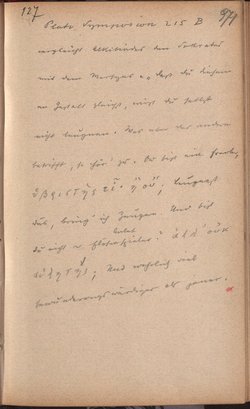 127
Plato, Symposion 215 B
vergleicht Alkibiades den Sokrates
mit dem Marsyas „daß du diesem
an Gestalt gleichst, wirst du selbst
nicht leugnen. Was aber das andere
betrifft, so hör' zu. Du bist ein
ὑβριστής εἶ· ἢ οὔ; leugnest
du, bring' ich Zeugen. Und bist
du nicht Flötenspieler? ἀλλ' οὐκ
αὐλητής; Und wahrlich viel
bewunderungswürdiger als jener.